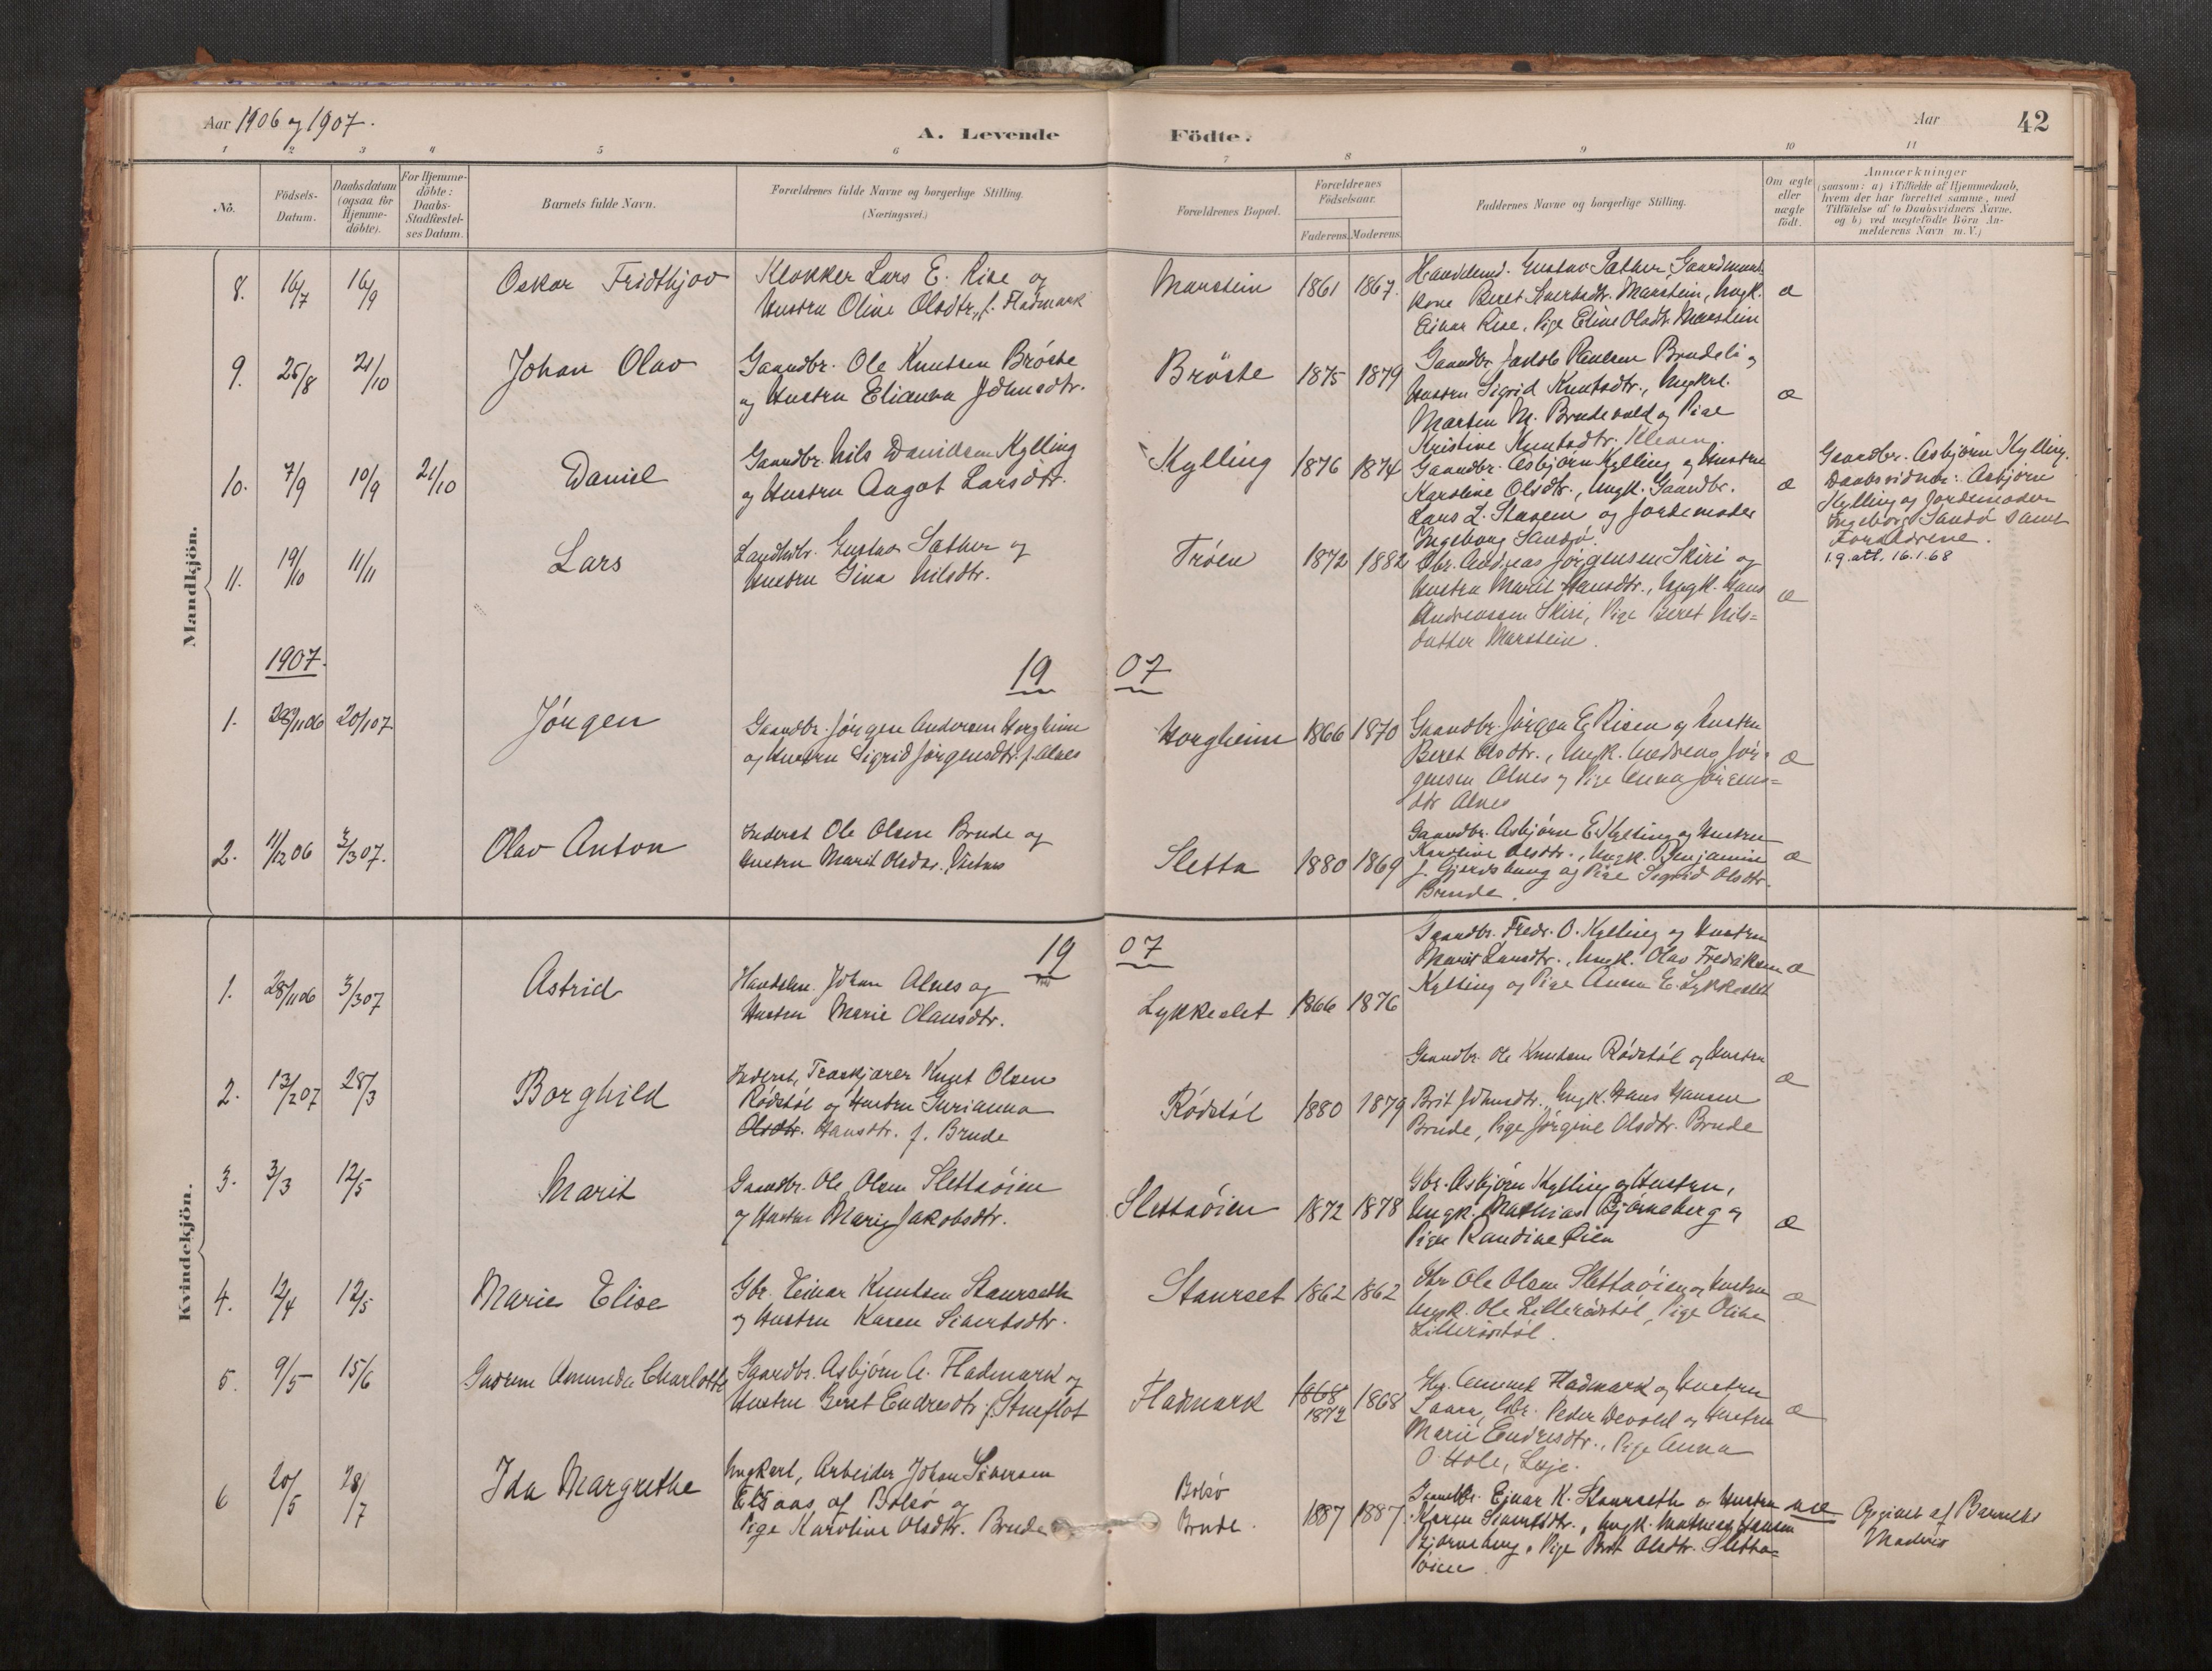 Aar 1906 og 1907.
A. Levende
Födte.
Aar
42
1 2 3 4 5 6 7 8 9 10 11
No.
Födsels-
Datum.
Daabsdatum
(ogsaa for
Hjemme-
döbte).
For Hjemme-
döbte:
Daabs-
Stadfæstel-
ses Datum.
Barnets fulde Navn.
Forældrenes fulde Navne og borgerlige Stilling.
(Næringsvei.)
Forældrenes Bopæl.
Forældrenes
Födselsaar.
Faderens.
Moderens.
Faddernes Navne og borgerlige Stilling.
Om ægte
eller
uægte
födt.
Anmærkninger
(saasom: a) i Tilfælde af Hjemmedaab,
hvem der har forrettet samme, med
Tilföielse af to Daabsvidners Navne,
og b) ved uægtefödte Börn An-
melderens Navn m. V.)
Mandkjön.
8. 16/7 16/9 Oskar Fridthjov
Klokker Lars E. Rise og
Hustru Oline Olsdtr., f. Fladmark
Marstein 1861 1867.
Handelsmd. Gustav Sæther, Gaardmands
kone Beret Sivertsdtr. Marstein, Ungk.
Einar Rise, Pige Eline Olsdtr. Marstein
æ
9. 25/8 21/10 Johan Olav
Gaardbr. Ole Knutsen Brøste
og Hustru Elianna Johnsdtr.
Brøste 1875 1879
Gaardbr. Jakob Paulsen Brudeli og
Hustru Sigrid Knutsdtr., Ungkrl.
Marten M. Brudevold og Pige
Kristine Knutsdtr. Kleven.
æ
10. 7/9 10/9 21/10 Daniel
Gaardbr. Nils Danielsen Kylling
og Hustru Angot Larsdtr.
Kylling 1876 1874
Gaardbr. Asbjørn Kylling og Hustru
Karoline Olsdtr., Ungk. Gaardbr.
Lars L. Stavem og Jordemoder
Ingeborg Sandø.
æ
Gaardbr. Asbjørn Kylling.
Daabsvidner: Asbjørn
Kylling og Jordemoder
Ingeborg Sandø samt
Forældrene.
1.9.att. 16.1.68
11. 19/10 11/11 Lars
Landhdlr. Gustav Sæther og
Hustru Gina Nilsdtr.
Trøen 1872 1882
Gbr. Andreas Jørgensen Skiri og
Hustru Marit Hansdtr., Ungk. Hans
Andreassen Skiri, Pige Beret Nils-
datter Marstein.
æ
1907.
19 07
1. 28/11 06 20/1 07. Jørgen
Gaardbr. Jørgen Andersen Horgheim
og Hustru Sigrid Jørgensdtr. f. Alnes
Horgheim 1866 1870
Gaardbr. Jørgen E. Risen og Hustru
Beret Olsdtr., Ungk. Andreas Jør-
gensen Alnes og Pige Anna Jørgens-
dtr Alnes
æ
2. 11/12 06 3/3 07. Olav Anton
Inderst Ole Olsen Brude og
Hustru Marit Olsdtr.
Sletta 1880 1869
Gaardbr. Asbjørn E. Kylling og Hustru
Karoline Olsdtr., Ungk. Benjamin
J. og Pige Sigrid Olsdtr.
Brude.
æ
Kvindekjön.
19 07
1. 28/11 06 3/3 07 Astrid
Handelsm. Johan Alnes og
Hustru Marie Olausdtr.
Lykkeslet 1866 1876
Gaardbr. Fredr. O. Kylling og Hustru
Marit Larsdtr., Ungk. Olav Fredriksen
Kylling og Pige Anna E. Lykkeslet
æ
2. 13/2 07 28/3 Borghild
Inderst, Træskjærer Knut Olsen
Rødstøl og Hustru Gurianna
Olsdtr. Hansdtr. f. Brude
Rødstøl 1880 1879
Gaardbr. Ole Knutsen Rødstøl og Hustru
Brit Johnsdtr., Ungk. Hans Hansen
Brude, Pige Jørgine Olsdtr. Brude
æ
3. 3/3 12/5 Marit
Gaardbr. Ole Olsen Slettaøien
og Hustru Marie Jakobsdtr.
Slettaøien 1872 1878
Gbr. Asbjørn Kylling og Hustru,
Ungk. Mathias Bjørneberg og
Pige Randine Øien
æ
4. 12/4 12/5 Marie Elise
Gbr. Einar Knutsen Staurseth
og Hustru Karen Sivertsdtr.
Staurset 1862 1862
Gbr Ole Olsen Slettaøien og Hustru
Ungk. Ole Lillerødstøl, Pige Oline
Lillerødstøl.
æ
5. 9/5 15/6 Gudrun Amunda Charlotte
Gaardbr. Asbjørn A. Fladmark og
Hustru Beret Endresdtr. f. Stueflot
Fladmark 1868 1872 1868
Amund Fladmark og Hustru
Laura, Gbr. Peder Devold og Hustru
Marie Endresdtr., Pige Anna
O. Hole, Lesje.
æ
6 20/5 28/7 Ida Margrethe
Ungkarl, Arbeider Johan Siversen
Elsaas af Bolsø og
Pige Karoline Olsdtr. Brude
Bolsø
Brude. 1887 1887.
Gaardbr. Einar K. Staurseth og Hustru
Karen Sivertsdtr., Ungk. Mathias Hansen
Bjørneberg, Pige Brit Olsdtr. Sletta-
øien.
uæ
Opgivet af Barnets
Moder